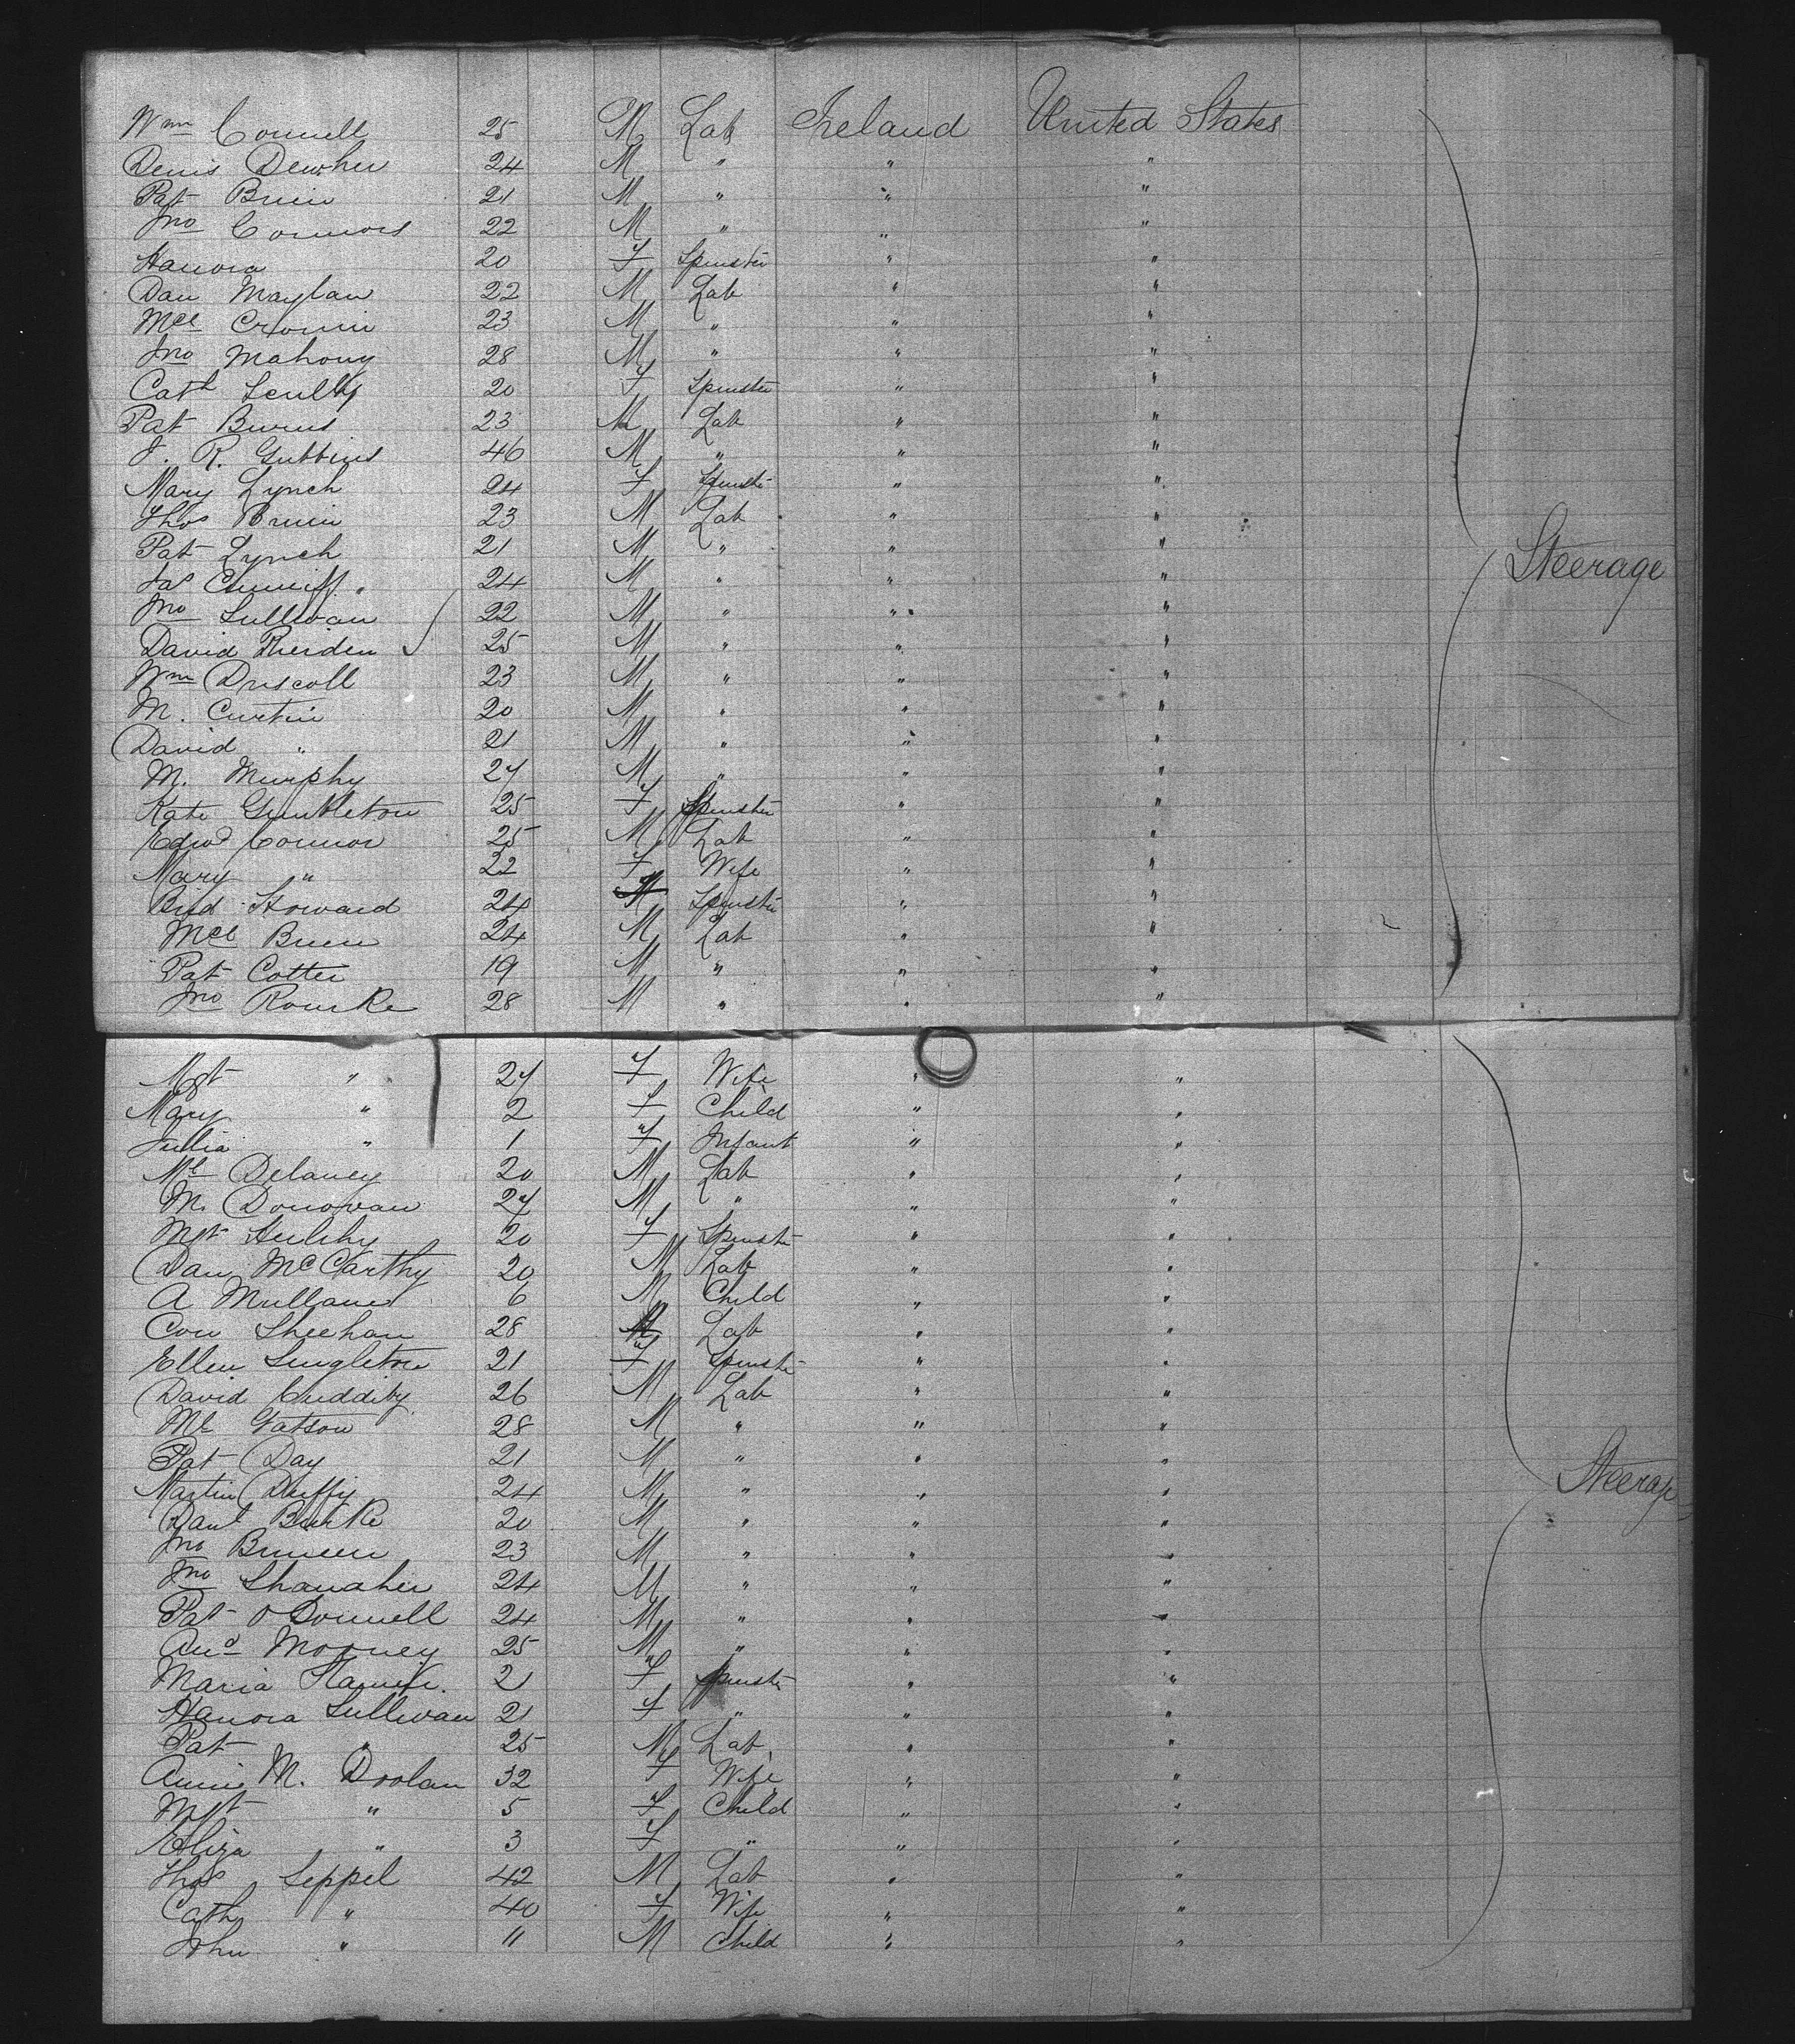 Wm Connell 25 M Lab Ireland United States
Denis Dewher 24 M " " "
Pat Brien 21 M " " "
Jno Connors 22 M " " "
Hanora 20 F Spinster " "
Dan Maylan 22 M Lab " "
Mcl Cronin 23 M " " "
Jno Mahony 28 M " " "
Cath Scully 20 F Spinster " "
Pat Burns 23 M Lab " "
J. R. Gubbins 46 M " " "
Mary Lynch 24 F Spinster " "
Thos Brien 23 M Lab " "
Pat Lynch 21 M " " " Steerage
Jas Cunniff 24 M " " "
Jno Sullivan 22 M " " "
David Rierden 25 M " " "
Wm Driscoll 23 M " " "
M. Curtin 20 M " " "
David " 21 M " " "
M. Murphy 27 M " " "
Kate 25 F Spinster " "
Edwd Connor 25 M Lab " "
Mary " 22 F Wife " "
Brid Howard 24 Spinster " "
Mcl Brien 24 M Lab " "
Pat Cotter 19 M " " "
Jno Rourke 28 M " " "
Mgt " 27 F Wife " "
Mary " 2 F Child " "
Julia " 1 F Infant " "
Ml Delaney 20 M Lab " "
M. Donovan 27 M " " "
Mgt 20 F Spinster " "
Dan McCarthy 20 M Lab " "
A Mullane 6 M Child " "
Con Sheehan 28 M Lab " "
Ellen Singleton 21 F Spinster " "
David Cuddihy 26 M Lab " "
Ml Gatson 28 M " " "
Pat Day 21 M " " " Steerage
Martin Duffy 24 M " " "
Danl Burke 20 M " " "
Jno 23 M " " "
Jno Shanaher 24 M " " "
Pat O'Donnell 24 M " " "
And Mooney 25 M " " "
Maria 21 F Spinster " "
Hanora Sullivan 21 F " " "
Pat " 25 M Lab " "
Annie M. Doolan 32 F Wife " "
Mgt " 5 F Child " "
Eliza " 3 F " " "
Thos Seppel 42 M Lab " "
Cath " 40 F Wife " "
John " 11 M Child " "